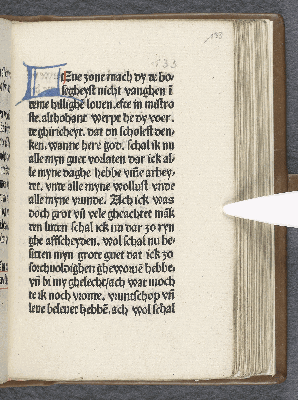 133
133
Lieue zone mach dy de bo
segheyst nicht vanghen ī
deme hillighē louen. efte in mistro
ste. althohant werpe he dy voer.
te ghiricheyt. dat du scholest den-
ken. wanne here god. schal ik nu
alle myn guet vorlaten dar ick al-
le myne daghe hebbe vm̄e arbey-
det. vnde alle myne wollust vnde
alle myne vrunde. Ach ick was
doch grot vn̄ vele gheachtet māk
den luden schal ick nu dar zo ryn
ghe affscheyden. wol schal nu be-
sitten myn grote guet dat ick zo
sorchuoldighen ghewonnē hebbe.
vn̄ bi my ghelecht/ach wat moch
te ik noch vromē. vruntschop vn̄
leue beleuet hebbē. ach wol schal